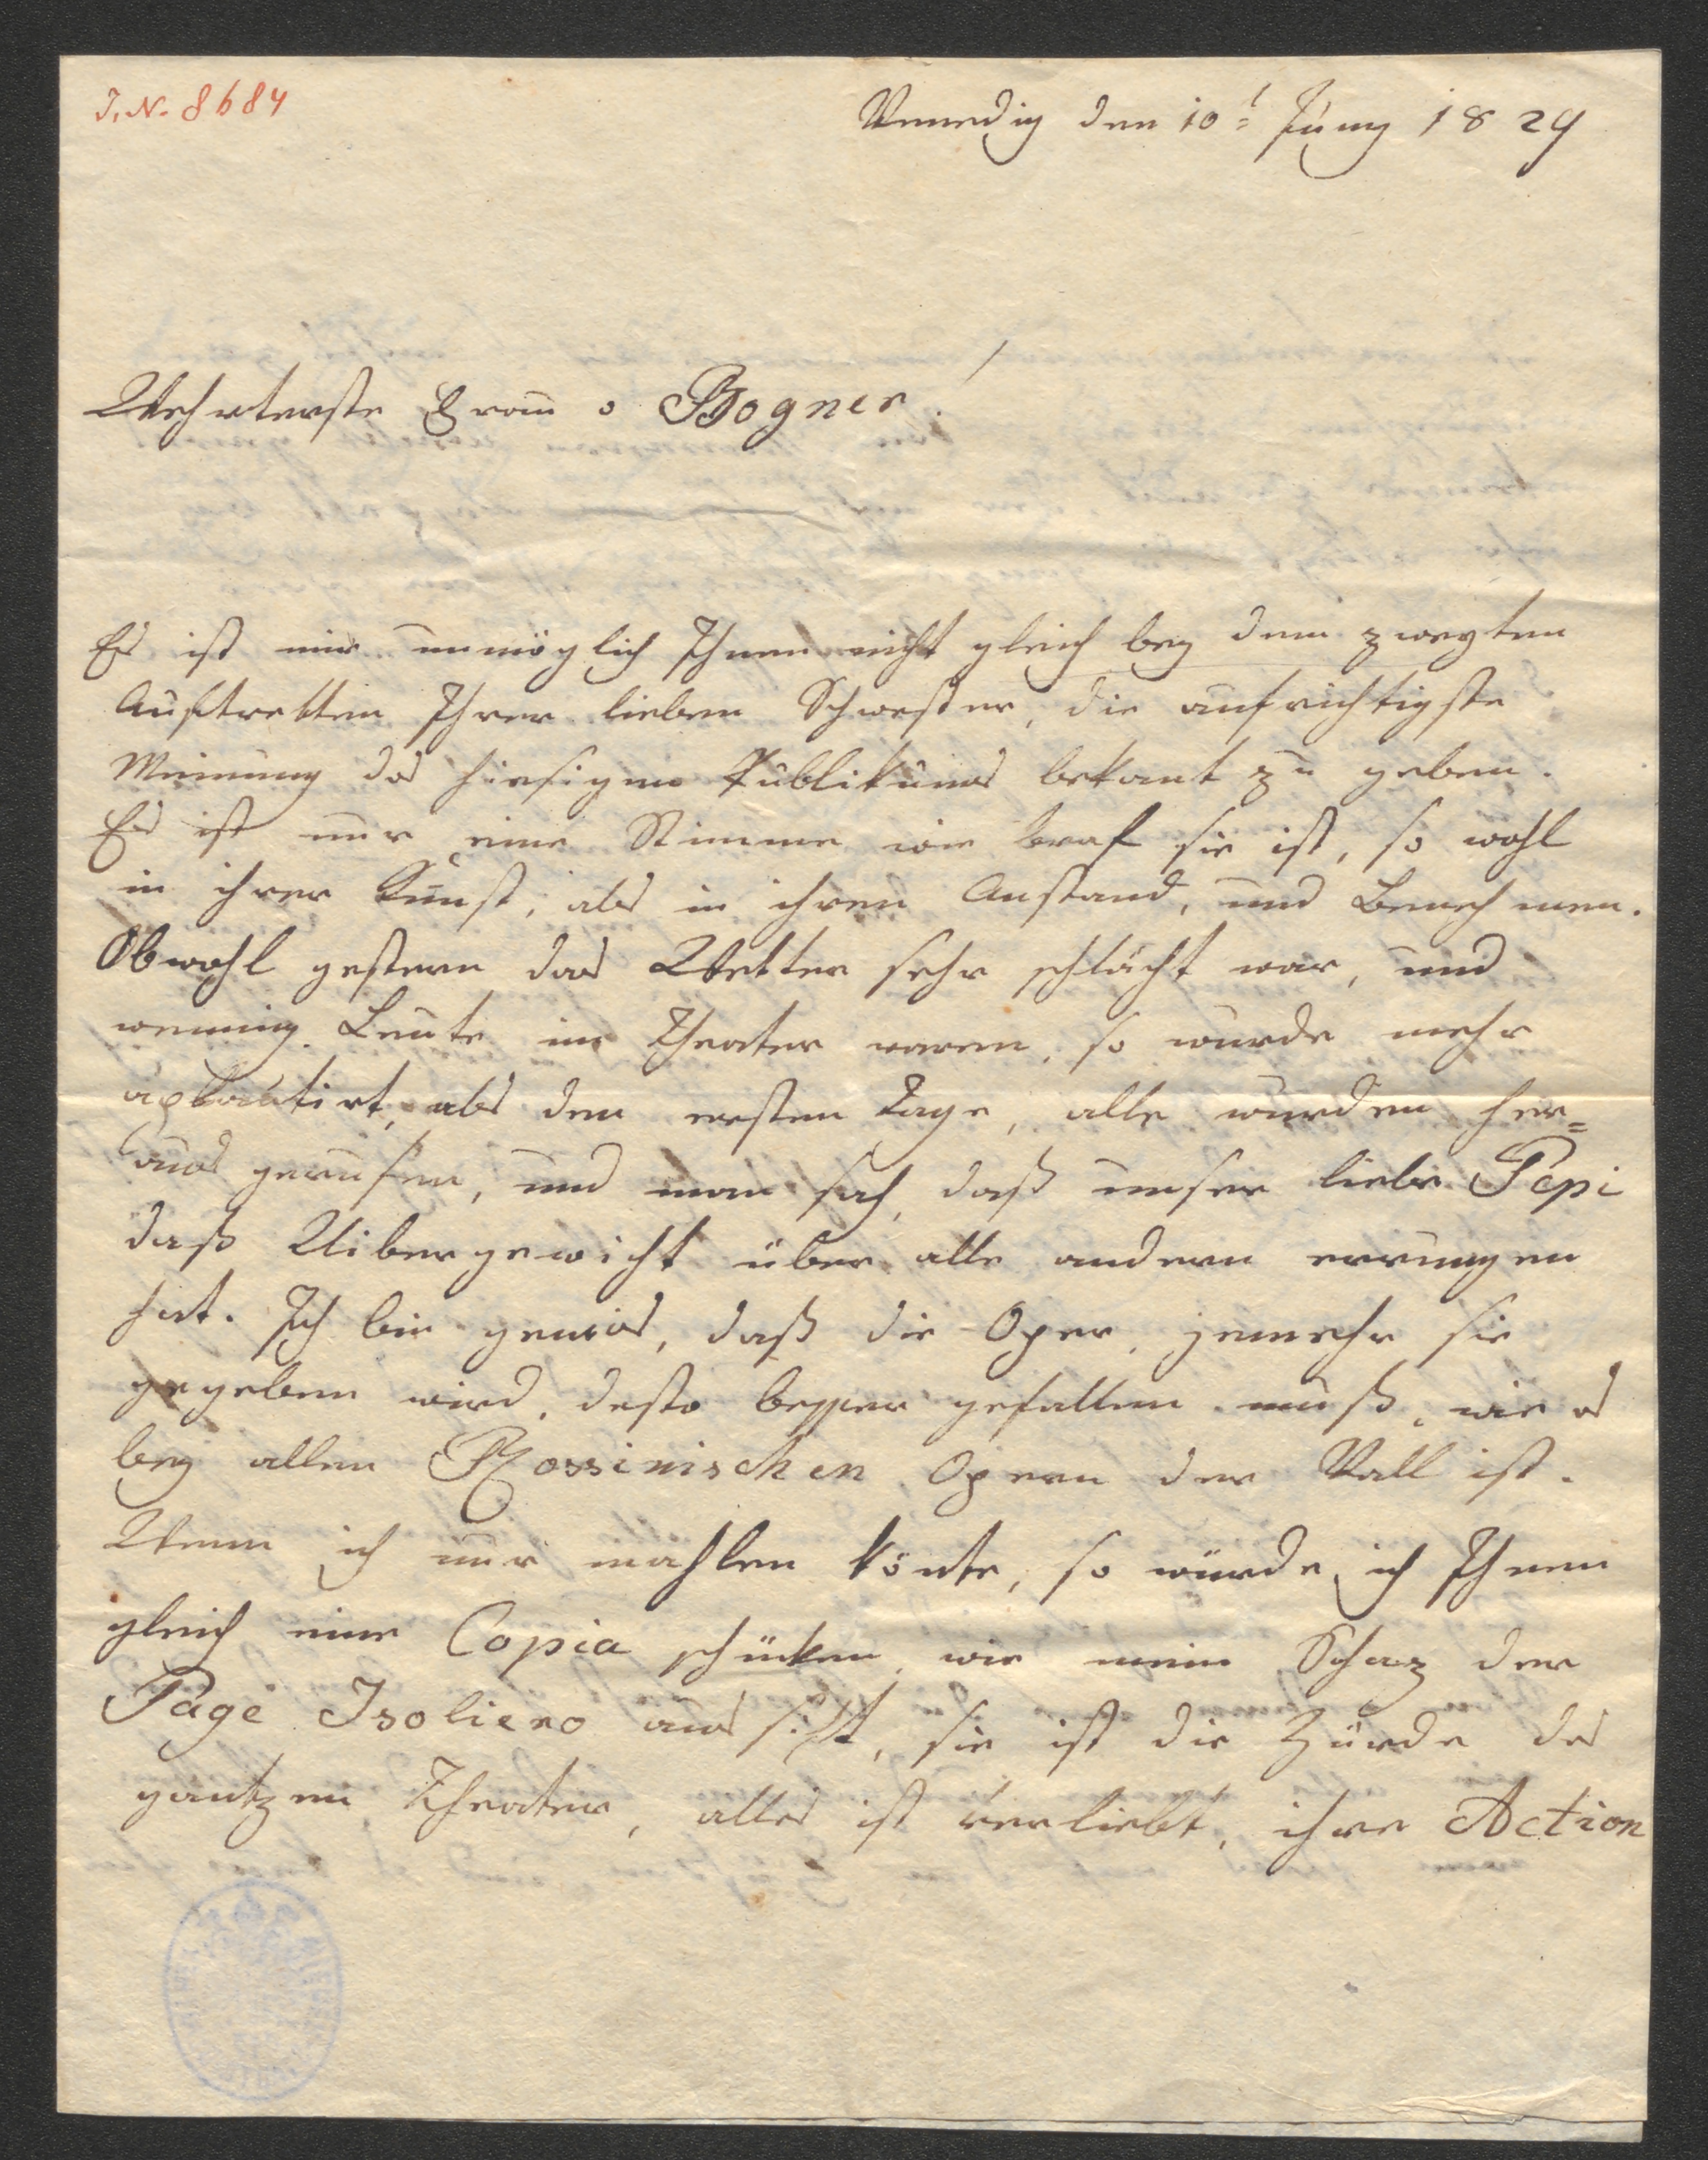 J. N. 8684
Venedig den 10t Juny 1829
Wehrterste Frau v Bogner!
Es ist mir unmöglich Ihnen nicht gleich bey dem zweyten
Auftretten Ihrer lieben Schwester, die aufrichtigste
Meinung des hiesigen Publikums bekant zu geben.
Es ist nur eine Stimme wie braf sie ist, so wohl
in ihrer Kunst, als in ihren Anstand, und Benehmen.
Obwohl gestern das Wetter sehr schlächt war, und
wennig Leute im Theater waren, so wurde mehr
aplautirt, als den ersten Tage, alle wurden her=
aus gerufen, und man sah, daß unser liebe Pepi
daß Uibergewicht über alle andern errungen
hat. Ich bin gewis, daß die Oper, jemehr sie
gegeben wird, desto besser gefallen muß, wie es
bey allen Rossinischen Opern der Vall ist.
Wenn ich nur mahlen könte, so würde ich Ihnen
gleich eine Copia schüken, wie mein Schaz der
Page Isoliero aus siht, sie ist die Zürde des
gantzen Theater, alles ist verliebt, ihre Action